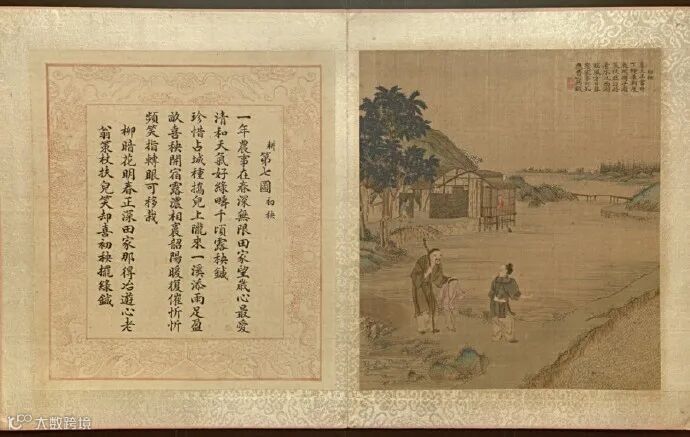 耕 第七圖 初秧
一年農事在春深無限田家望歲心最愛
清和天氣好綠疇千頃露秧鍼
珍惜占城種攜兒上隴來一溪添雨足盈
畝喜秧開宿露濃相裛韶陽暖復催忻忻
頻笑指轉眼可移栽
柳暗花明春正深田家那得冶遊心老
翁策杖扶兒笑却喜初秧擺綠鍼
初秧
大数跨境